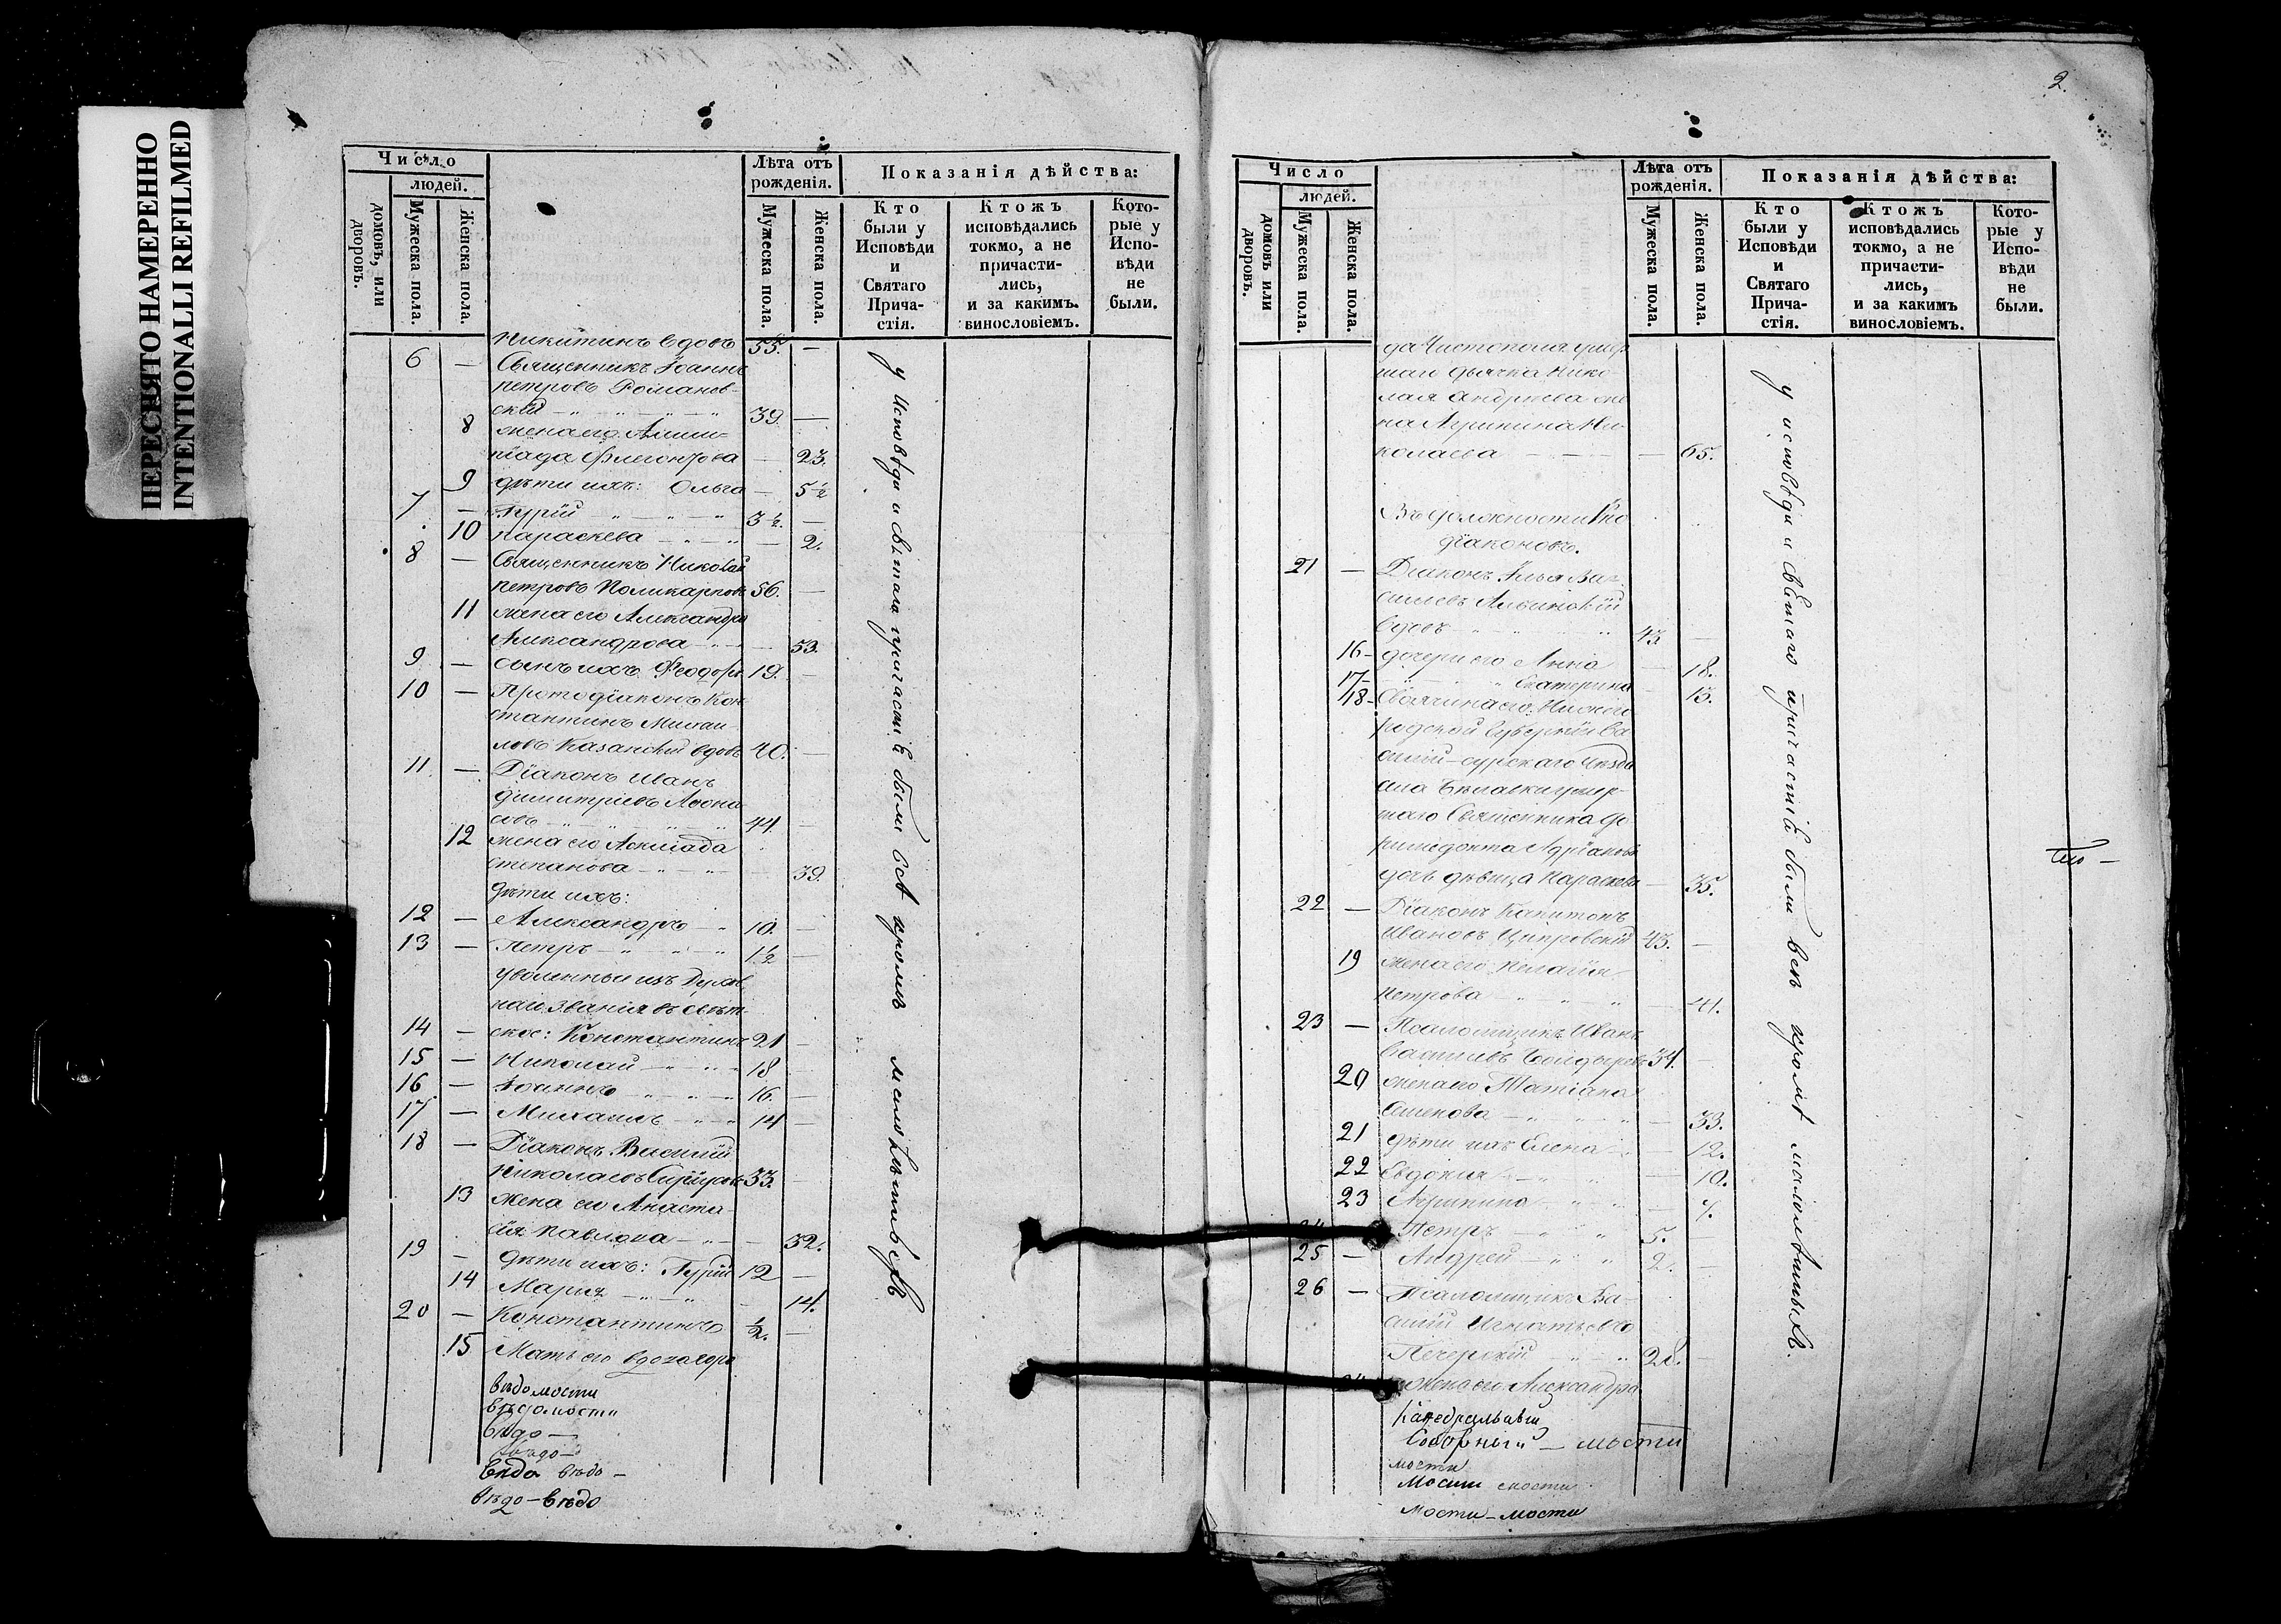 ПЕРЕСНЯТО НАМЕРЕННО
INTENTIONALLI REFILMED
Число
людей.
домовъ, или дворовъ.
Мужеска пола.
Женска пола.
Лѣта отъ рожденія.
Мужеска пола.
Женска пола.
Показанія дѣйства:
Кто были у Исповѣди и Святаго Причастія.
Ктожъ исповѣдались токмо, а не причастились, и за какимъ. винословіемъ.
Которые у Исповѣди не были.
Никитинъ вдовъ 55. —
6 — Священникъ Іоаннъ
Петровъ Романов-
скій 39. —
8 жена его
Флегонтова — 23.
9 дѣти ихъ: Ольга — 5½
7 — Гурій 3½. —
10 Параскева — 2.
8 — Священникъ Николай
Петровъ Поликарповъ 56. —
11 жена его Александра
Александрова — 53.
9 — сынъ ихъ Ѳеодоръ 19. —
10 — Протодіаконъ Кон
стантинъ Михаи
ловъ Казанскій вдовъ 40. —
11. — Діаконъ Иванъ
Димитріевъ Аѳона
евъ 44. —
12 жена его Асклиада
Степанова — 39.
дѣти ихъ:
12 — Александръ 10. —
13 — Петръ 1½ —
уволенныи изъ Духов
наго званія въ свѣт
14 — ское: Константинъ 21 —
15 — Николай 18
16 — Іоаннъ 16. —
17 — Михаилъ 14 —
18 — Діаконъ Василій
Николаевъ 33. —
13 жена его Анаста
сія Павлова — 32.
19 — дѣти ихъ: Гурій 12 —
14 Марія — 14.
20 — Константинъ ½. —
15 Мать его вдова
вѣдомости
вѣдомости
вѣдо —
вѣдо —
вѣдо вѣдо —
вѣдо — вѣдо
у исповѣди и святаго причастія были всѣ кромѣ малолѣтныхъ
2.
Число
людей.
домовъ или дворовъ.
Мужеска пола.
Женска пола.
Лѣта отъ рожденія.
Мужеска пола.
Женска пола.
Показанія дѣйства:
Кто были у Исповѣди и Святаго Причастія.
Ктожъ исповѣдались токмо, а не причастились, и за какимъ винословіемъ.
Которые у Исповѣди не были.
да Чистополя умер
шаго дьячка Нико
лая Андреева же
на Агрипина Ни
колаева — 65.
Въ должности
діаконовъ.
21 — Діаконъ Илья Ва
сильевъ Альинскій
вдовъ 43 —
16 — дочери его Анна — 18.
17 — Екатерина — 13.
18 — Своячина его Нижего
родской Губерніи Ва
силій-сурскаго уѣзда
села Бѣлавки умер
шаго Священника Ѳе
Адріанова
дочь дѣвица Параскева — 35.
22 — Діаконъ Капитонъ
Ивановъ 43. —
19 жена его Пелагія
Петрова — 41.
23 — Псаломщикъ Иванъ
Васильевъ 34. —
20 жена его Татіана
Семенова — 33.
21 дѣти ихъ Елена — 12.
22 Евдокія — 10.
23 Агрипина — 7.
24 Петръ 5. —
25 — Андрей 2. —
26 — Псаломщикъ Ва-
силій Игнатьевъ
Печерскій 28. —
жена его Александра
Каѳедральный
Соборный — мости
мости
мости мости
мости — мости
у исповѣди и святаго причастія были всѣ кромѣ малолѣтныхъ.